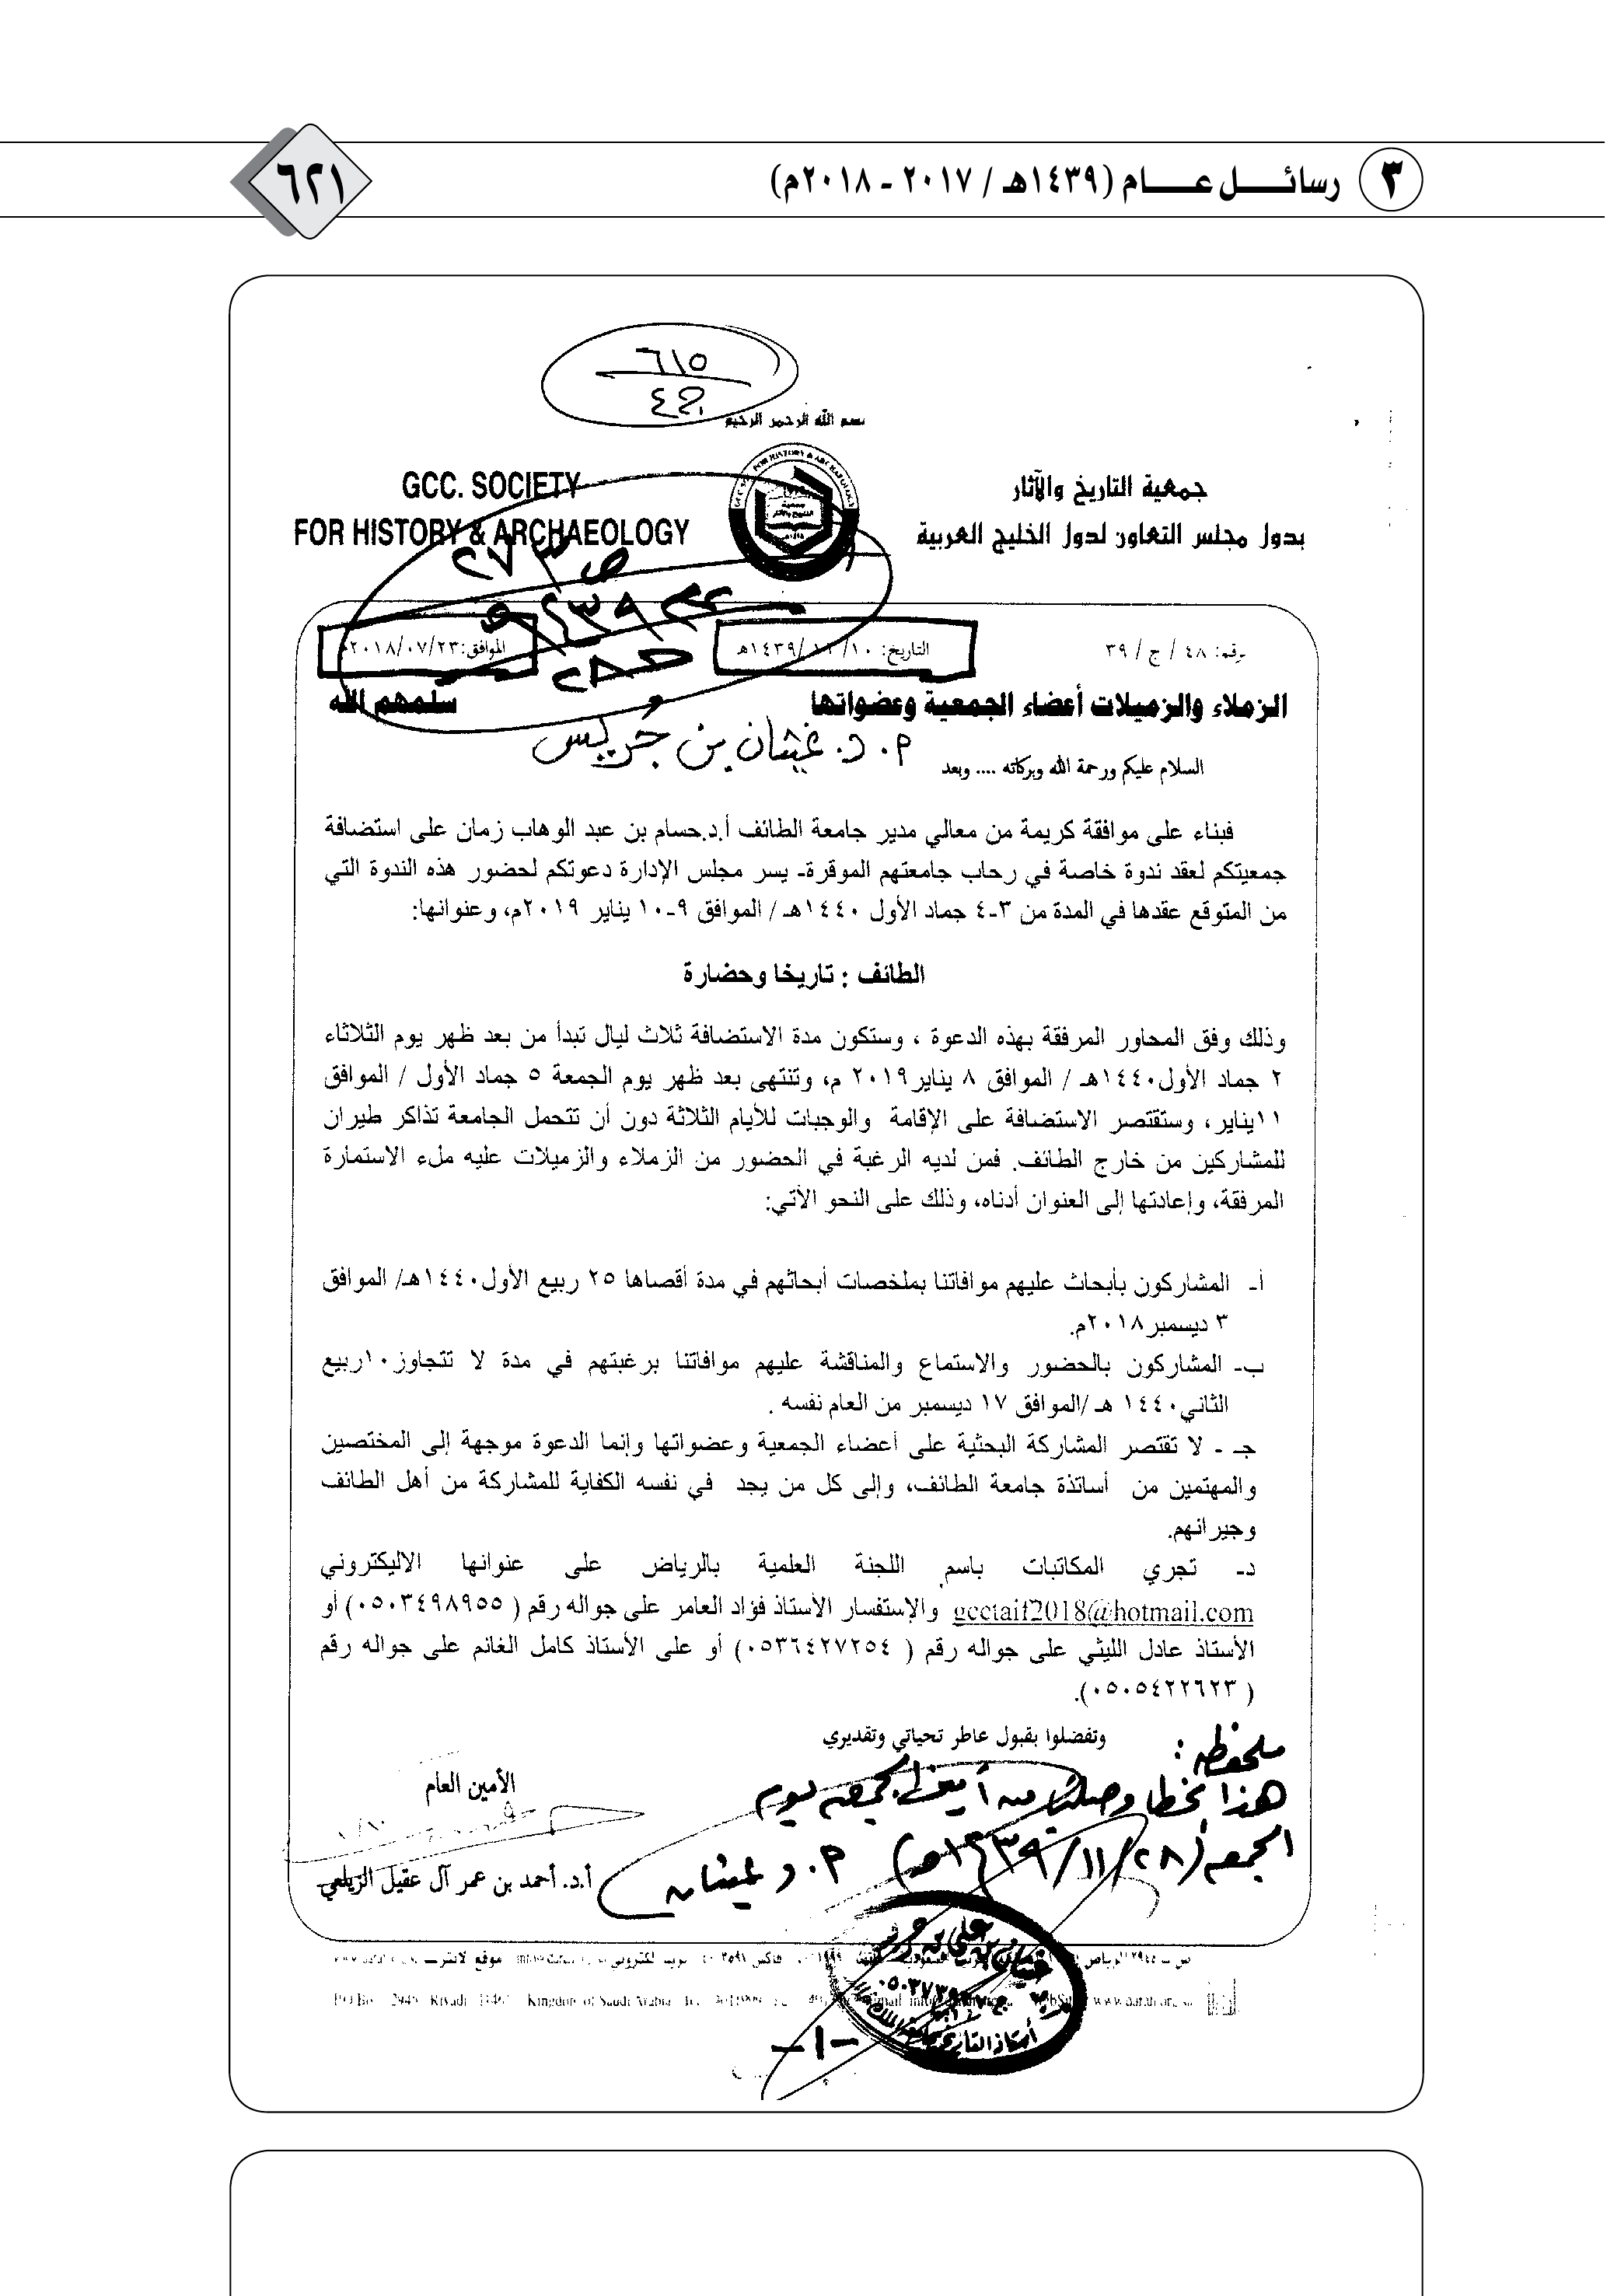 ٣ رسائل عام (١٤٣٩هـ / ٢٠١٧ - ٢٠١٨م)
٦٢١
٦١٥
بسم الله الرحمن الرحيم
جمعية التاريخ والآثار
بدول مجلس التعاون لدول الخليج العربية
GCC. SOCIETY
FOR HISTORY & ARCHAEOLOGY
رقم: ٤٨ / ج / ٣٩
التاريخ: ١٠/ /١٤٣٩هـ
الموافق: ٢٠١٨/٠٧/٢٣
الزملاء والزميلات أعضاء الجمعية وعضواتها سلمهم الله
م. د. غيثان بن جريس
السلام عليكم ورحمة الله وبركاته .... وبعد
فبناء على موافقة كريمة من معالي مدير جامعة الطائف أ.د.حسام بن عبد الوهاب زمان على استضافة
جمعيتكم لعقد ندوة خاصة في رحاب جامعتهم الموقرة- يسر مجلس الإدارة دعوتكم لحضور هذه الندوة التي
من المتوقع عقدها في المدة من ٣-٤ جماد الأول ١٤٤٠هـ / الموافق ٩-١٠ يناير ٢٠١٩م، وعنوانها:
الطائف : تاريخا وحضارة
وذلك وفق المحاور المرفقة بهذه الدعوة ، وستكون مدة الاستضافة ثلاث ليال تبدأ من بعد ظهر يوم الثلاثاء
٢ جماد الأول١٤٤٠هـ / الموافق ٨ يناير٢٠١٩ م، وتنتهي بعد ظهر يوم الجمعة ٥ جماد الأول / الموافق
١١يناير، وستقتصر الاستضافة على الإقامة والوجبات للأيام الثلاثة دون أن تتحمل الجامعة تذاكر طيران
للمشاركين من خارج الطائف. فمن لديه الرغبة في الحضور من الزملاء والزميلات عليه ملء الاستمارة
المرفقة، وإعادتها إلى العنوان أدناه، وذلك على النحو الآتي:
أ- المشاركون بأبحاث عليهم موافاتنا بملخصات أبحاثهم في مدة أقصاها ٢٥ ربيع الأول١٤٤٠هـ/ الموافق
٣ ديسمبر٢٠١٨م.
ب- المشاركون بالحضور والاستماع والمناقشة عليهم موافاتنا برغبتهم في مدة لا تتجاوز١٠ربيع
الثاني١٤٤٠ هـ /الموافق ١٧ ديسمبر من العام نفسه .
جـ - لا تقتصر المشاركة البحثية على أعضاء الجمعية وعضواتها وإنما الدعوة موجهة إلى المختصين
والمهتمين من أساتذة جامعة الطائف، وإلى كل من يجد في نفسه الكفاية للمشاركة من أهل الطائف
وجيرانهم.
د- تجري المكاتبات باسم اللجنة العلمية بالرياض على عنوانها الاليكتروني
gcctaif2018@hotmail.com والإستفسار الأستاذ فؤاد العامر على جواله رقم ( ٠٥٠٣٤٩٨٩٥٥) أو
الأستاذ عادل الليثي على جواله رقم ( ٠٥٣٦٤٢٧٢٥٤) أو على الأستاذ كامل الغانم على جواله رقم
( ٠٥٠٥٤٢٢٦٢٣).
وتفضلوا بقبول عاطر تحياتي وتقديري
ملحظه :
هذا الخطاب وصلنا من أمين الجمعية يوم
الجمعه (١٤٣٩/١١/٢٨هـ) م. د غيثان
الأمين العام
أ.د. أحمد بن عمر آل عقيل الزيلعي
-١-